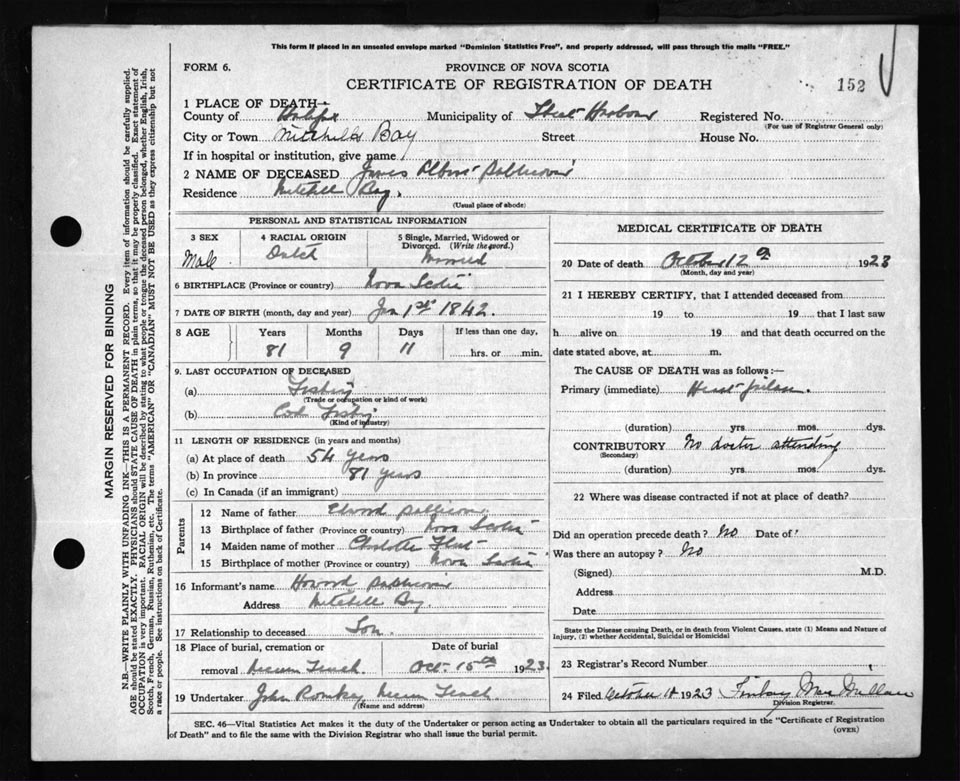 This form if placed in an unsealed envelope marked "Dominion Statistics Free", and properly addressed, will pass through the mails "FREE."
FORM 6.
PROVINCE OF NOVA SCOTIA
CERTIFICATE OF REGISTRATION OF DEATH
152
1 PLACE OF DEATH—
County of Halifax Municipality of Harbour Registered No.
(For use of Registrar General only)
City or Town Mitchells Bay Street House No.
If in hospital or institution, give name
2 NAME OF DECEASED James
Residence Mitchell Bay.
(Usual place of abode)
PERSONAL AND STATISTICAL INFORMATION
3 SEX 4 RACIAL ORIGIN 5 Single, Married, Widowed or Divorced. (Write the word.)
Male Dutch Married
6 BIRTHPLACE (Province or country) Nova Scotia
7 DATE OF BIRTH (month, day and year) Jan 1st 1842.
8 AGE Years Months Days If less than one day,
81 9 11 hrs. or min.
9. LAST OCCUPATION OF DECEASED
(a) Fishing
(Trade or occupation or kind of work)
(b) Cod Fishing
(Kind of industry)
11 LENGTH OF RESIDENCE (in years and months)
(a) At place of death 54 years
(b) In province 81 years
(c) In Canada (if an immigrant)
Parents
12 Name of father
13 Birthplace of father (Province or country) Nova Scotia
14 Maiden name of mother Charlotte
15 Birthplace of mother (Province or country) Nova Scotia
16 Informant's name Howard
Address Mitchell Bay.
17 Relationship to deceased Son.
18 Place of burial, cremation or removal Necum Teuch. Date of burial Oct. 15th 1923.
19 Undertaker John Romkey Necum Teuch
(Name and address)
MEDICAL CERTIFICATE OF DEATH
20 Date of death October 12 1923
(Month, day and year)
21 I HEREBY CERTIFY, that I attended deceased from
19 to 19 that I last saw
h alive on 19 and that death occurred on
date stated above, at m.
The CAUSE OF DEATH was as follows:—
Primary (immediate) Heart failure.
(duration) yrs. mos. dys.
CONTRIBUTORY No doctor attending
(Secondary)
(duration) yrs. mos. dys.
22 Where was disease contracted if not at place of death?
Did an operation precede death? No Date of?
Was there an autopsy? No
(Signed) M.D.
Address
Date
State the Disease causing Death, or in death from Violent Causes, state (1) Means and Nature of Injury, (2) whether Accidental, Suicidal or Homicidal
23 Registrar's Record Number
24 Filed October 1923 Finlay
Division Registrar.
SEC. 46—Vital Statistics Act makes it the duty of the Undertaker or person acting as Undertaker to obtain all the particulars required in the "Certificate of Registration
of Death" and to file the same with the Division Registrar who shall issue the burial permit.
(OVER)
MARGIN RESERVED FOR BINDING
N.B.—WRITE PLAINLY WITH UNFADING INK—THIS IS A PERMANENT RECORD. Every item of information should be carefully supplied.
AGE should be stated EXACTLY. PHYSICIANS should STATE CAUSE OF DEATH in plain terms, so that it may be properly classified. Exact statement of
OCCUPATION is very important. RACIAL ORIGIN will be described by stating to what people or tongue the deceased person belonged, whether English, Irish,
Scotch, French, German, Russian, Ruthenian, etc. The terms "AMERICAN" OR "CANADIAN" MUST NOT BE USED as they express citizenship but not
a race or people. See instructions on back of Certificate.